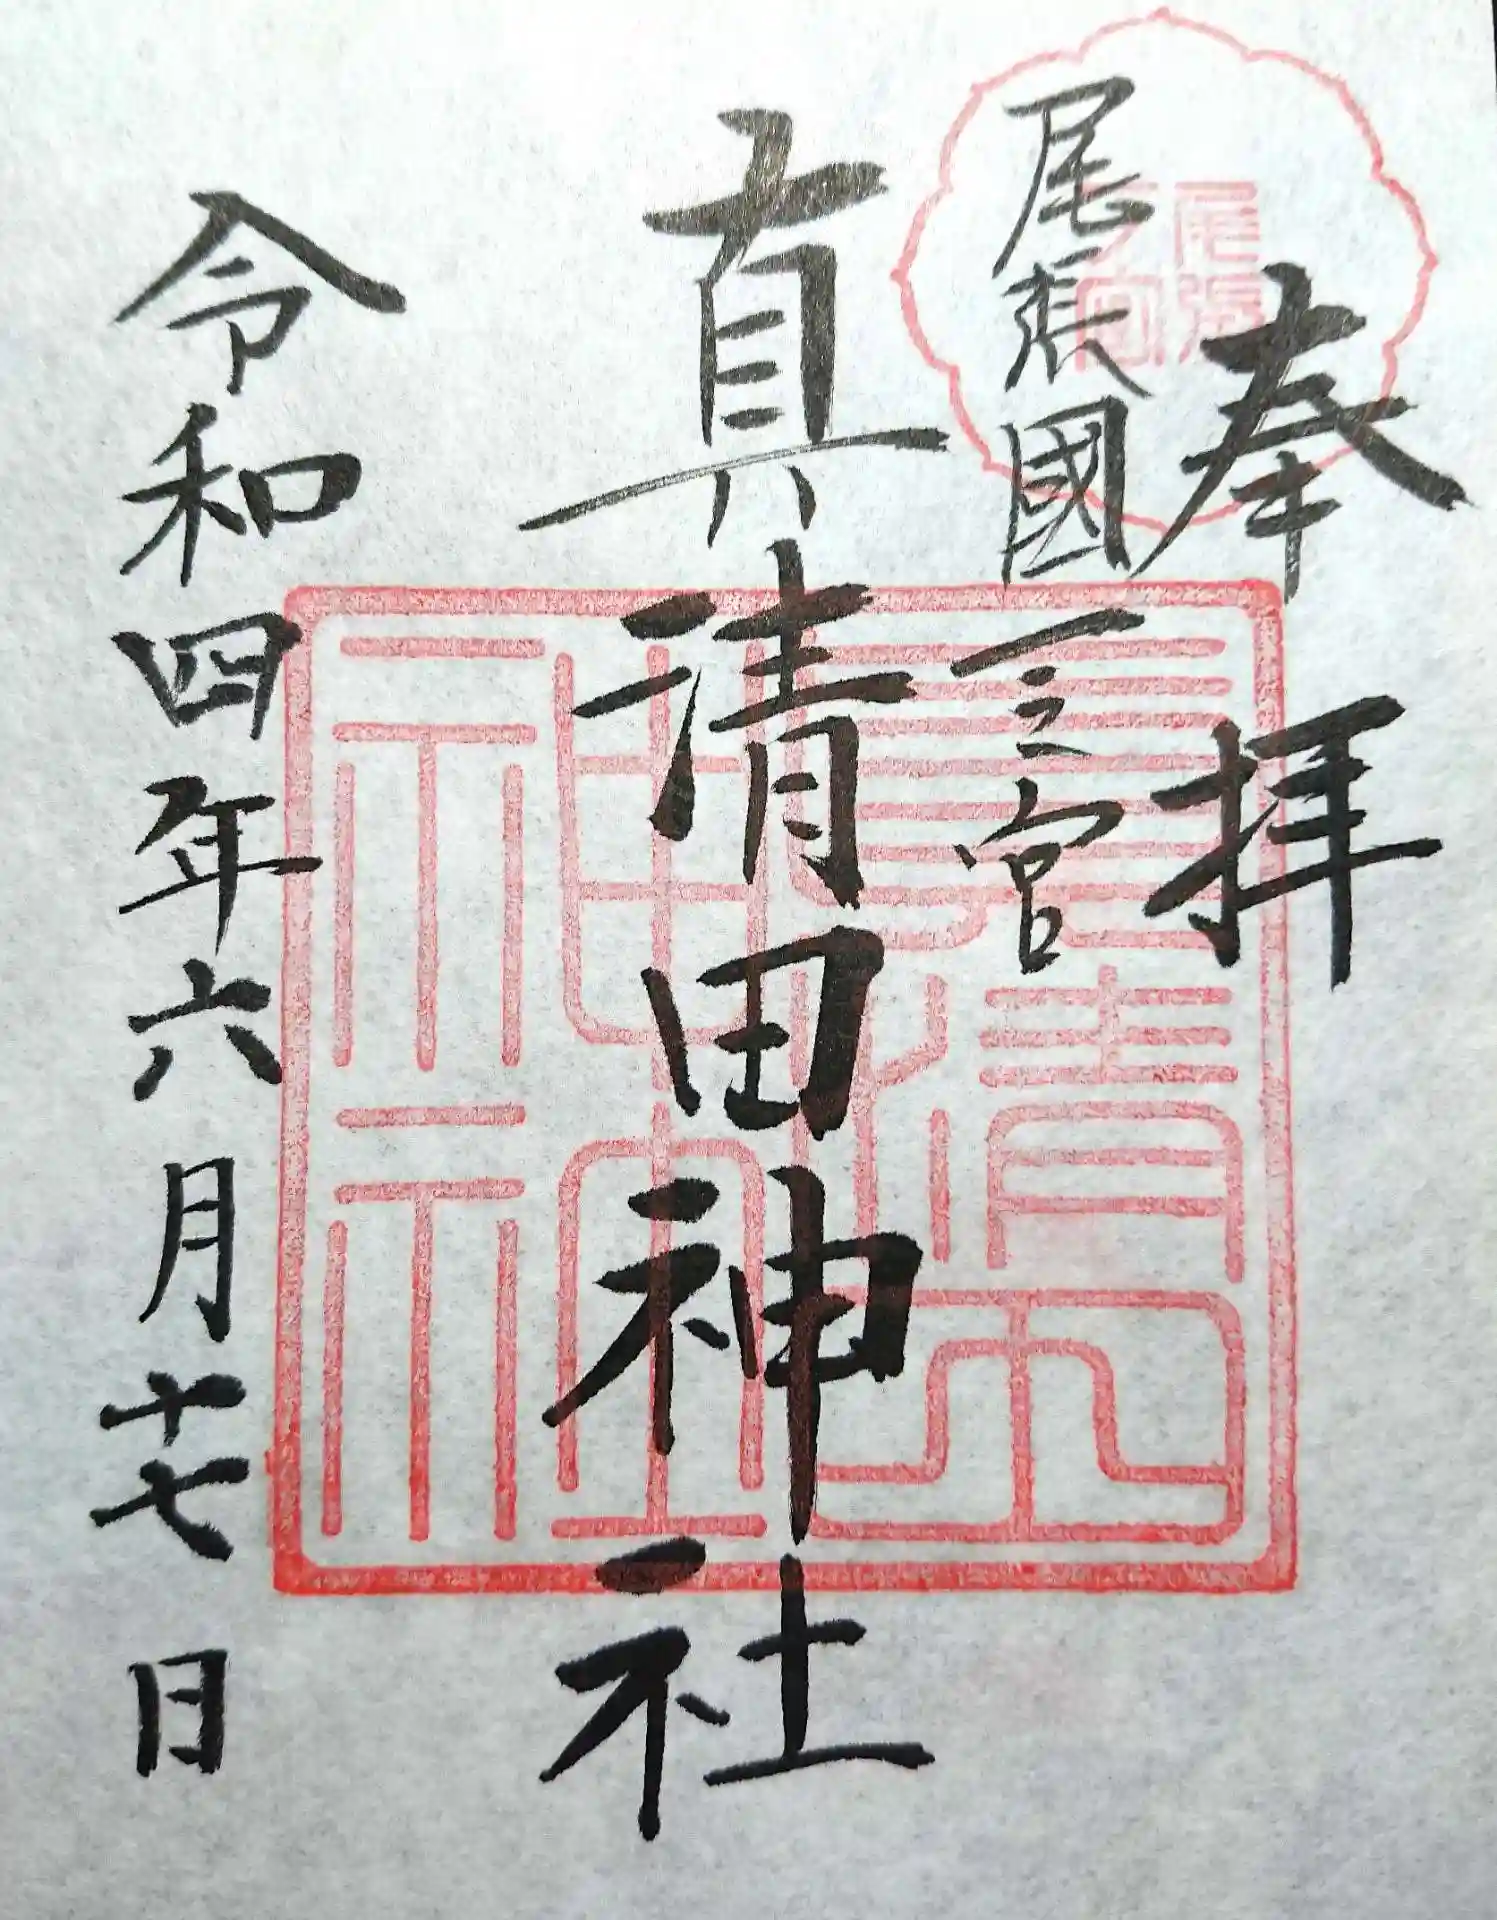 奉拝
尾張國一之宮
真清田神社
令和四年六月十七日
尾張
眞清田
神社